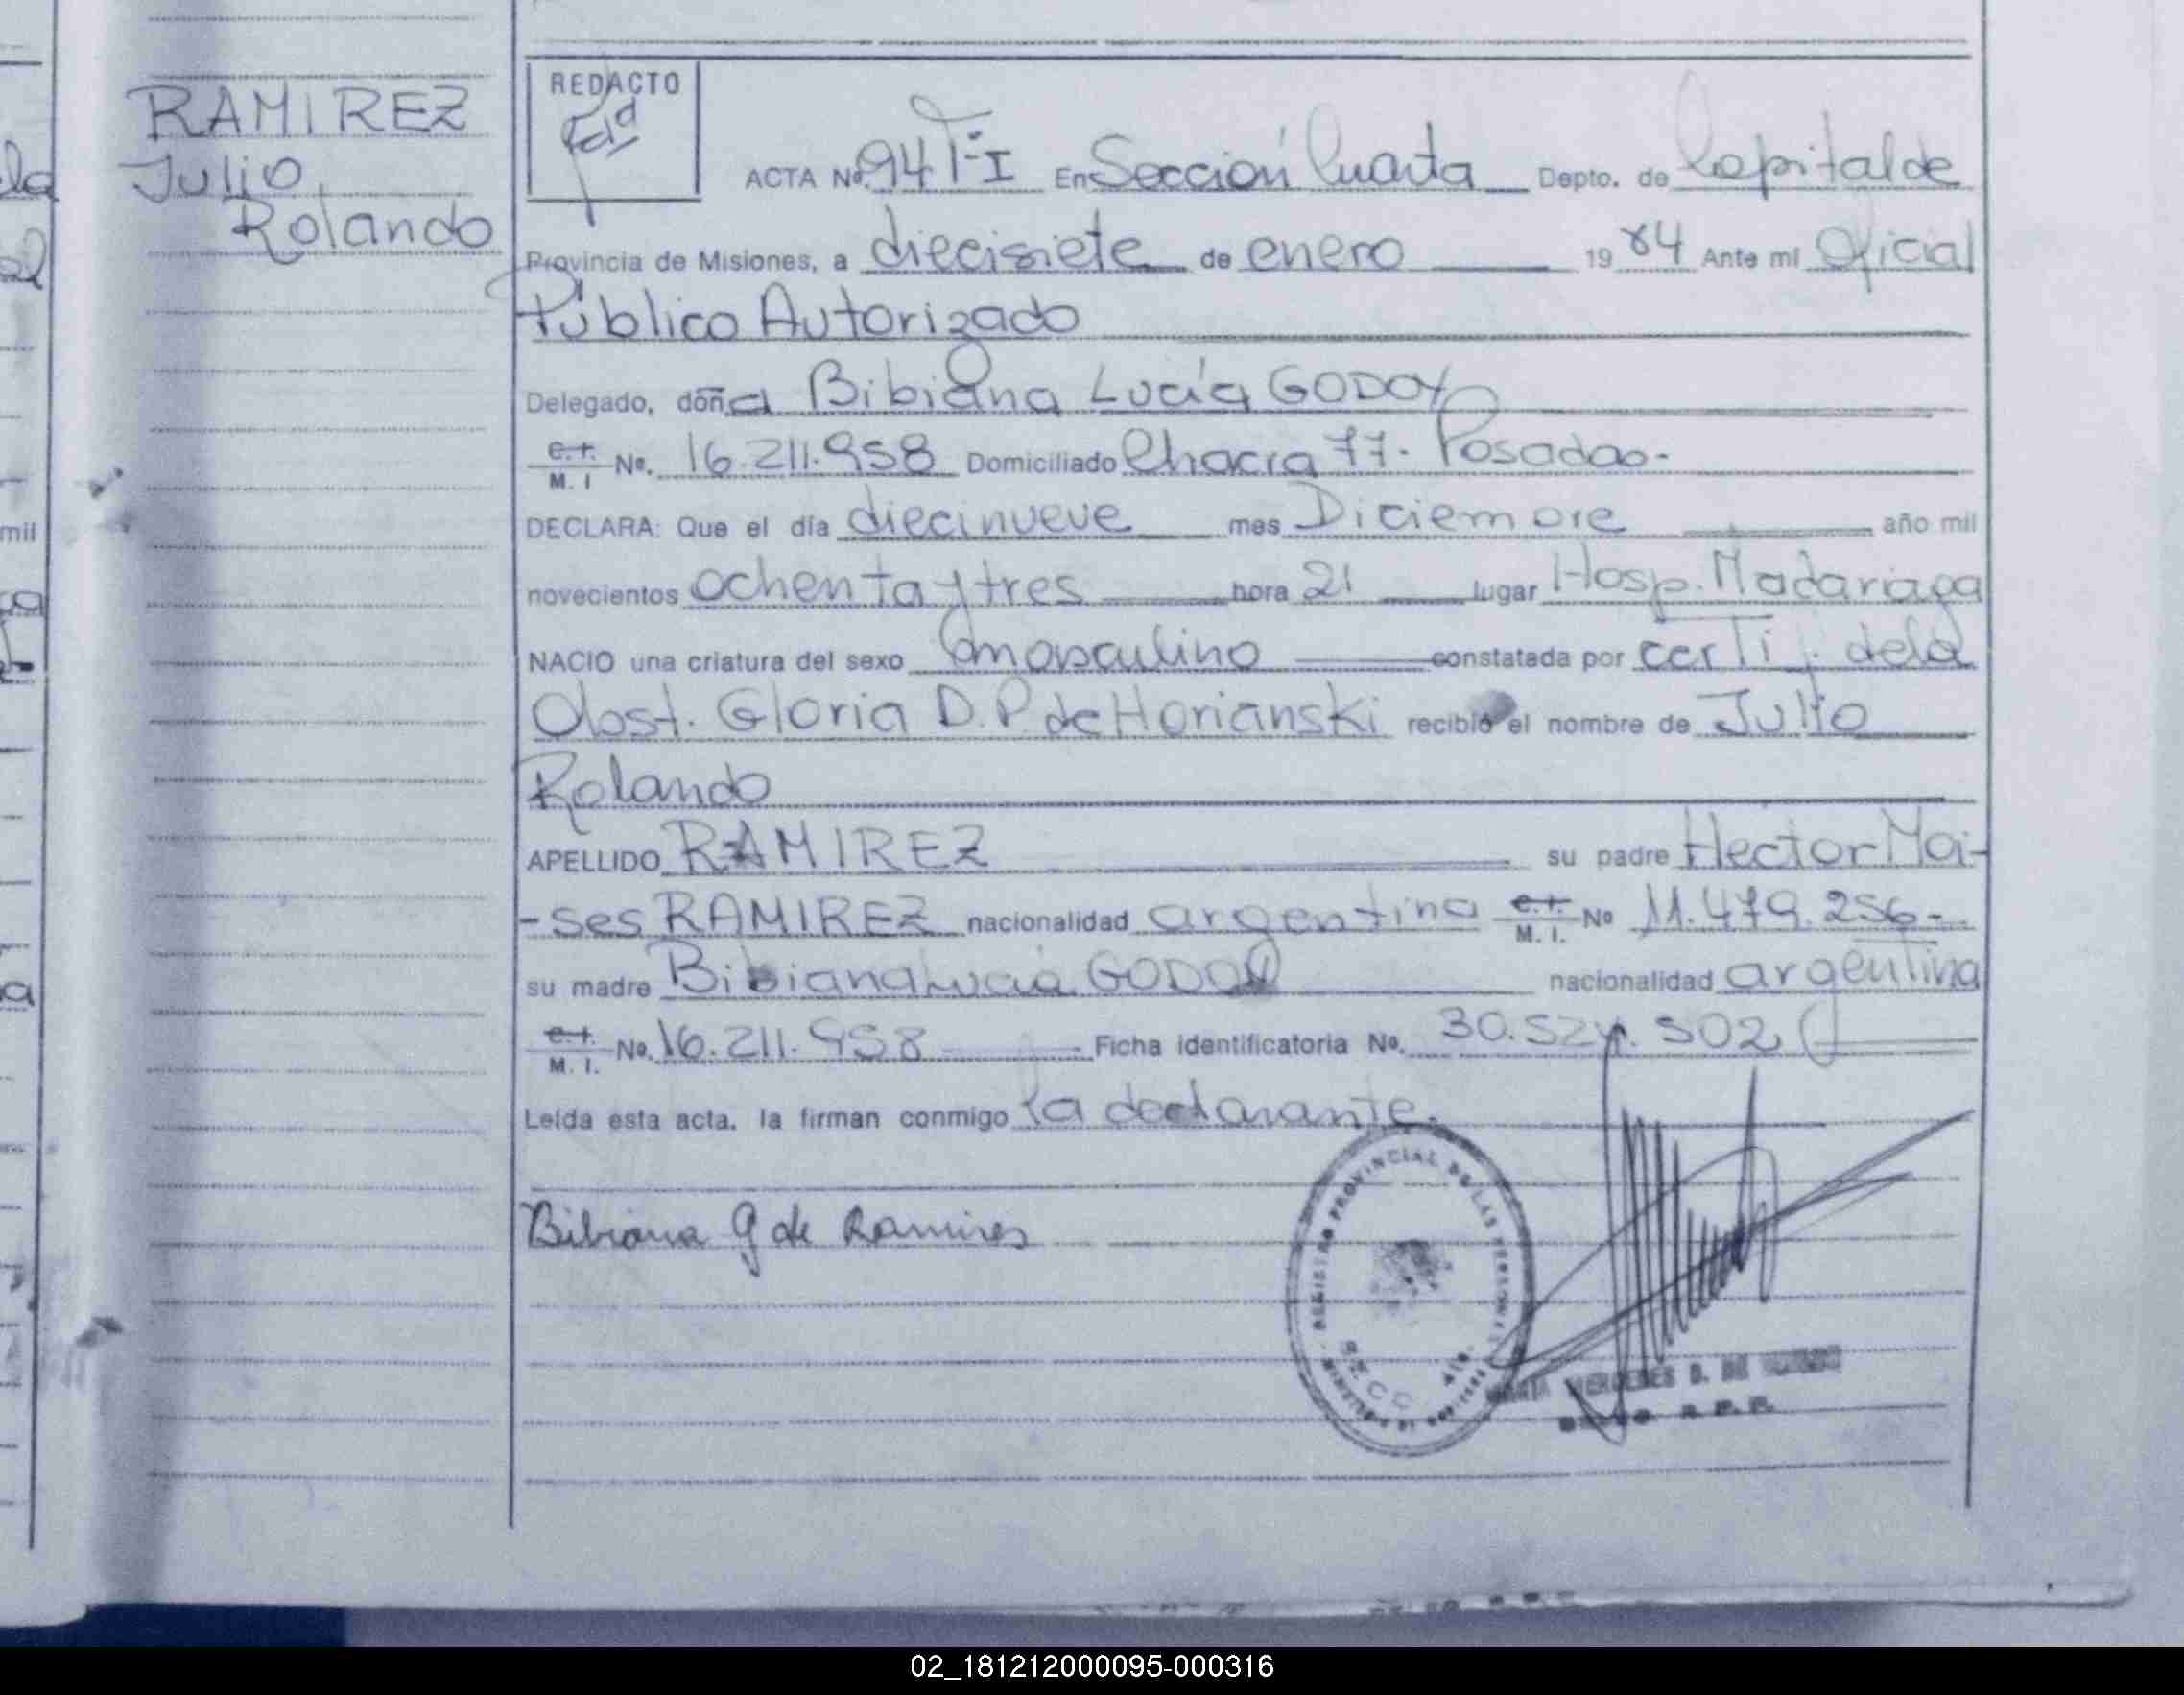 RAMIREZ
Julio
Rolando
REDACTO
ACTA Nº 94 T-I En Sección Cuarta Depto. de Capital de
Provincia de Misiones, a diecisiete de enero 1984 Ante mi Oficial
Público Autorizado
Delegado, doña Bibiana Lucía GODOY
C.I. M.I Nº. 16.211.958 Domiciliado Chacra 77. Posadas.
DECLARA: Que el día diecinueve mes Diciembre año mil
novecientos ochenta y tres hora 21 lugar Hosp. Madariaga
NACIO una criatura del sexo masculino constatada por certif. de la
Obst. Gloria D.P. de Horianski recibió el nombre de Julio
Rolando
APELLIDO RAMIREZ su padre Hector Moi-
-ses RAMIREZ nacionalidad argentina C.I. M.I. Nº 11.479.256-
su madre Bibiana Lucía GODOY nacionalidad argentina
C.I. M.I. Nº. 16.211.958 Ficha identificatoria Nº. 30.524.502
Leída esta acta. la firman conmigo la declarante.
Bibiana G de Ramires
REGISTRO PROVINCIAL DE LAS PERSONAS
SECC. 4ta.
MERCEDES B. DE
R.P.P.
mil
02_181212000095-000316